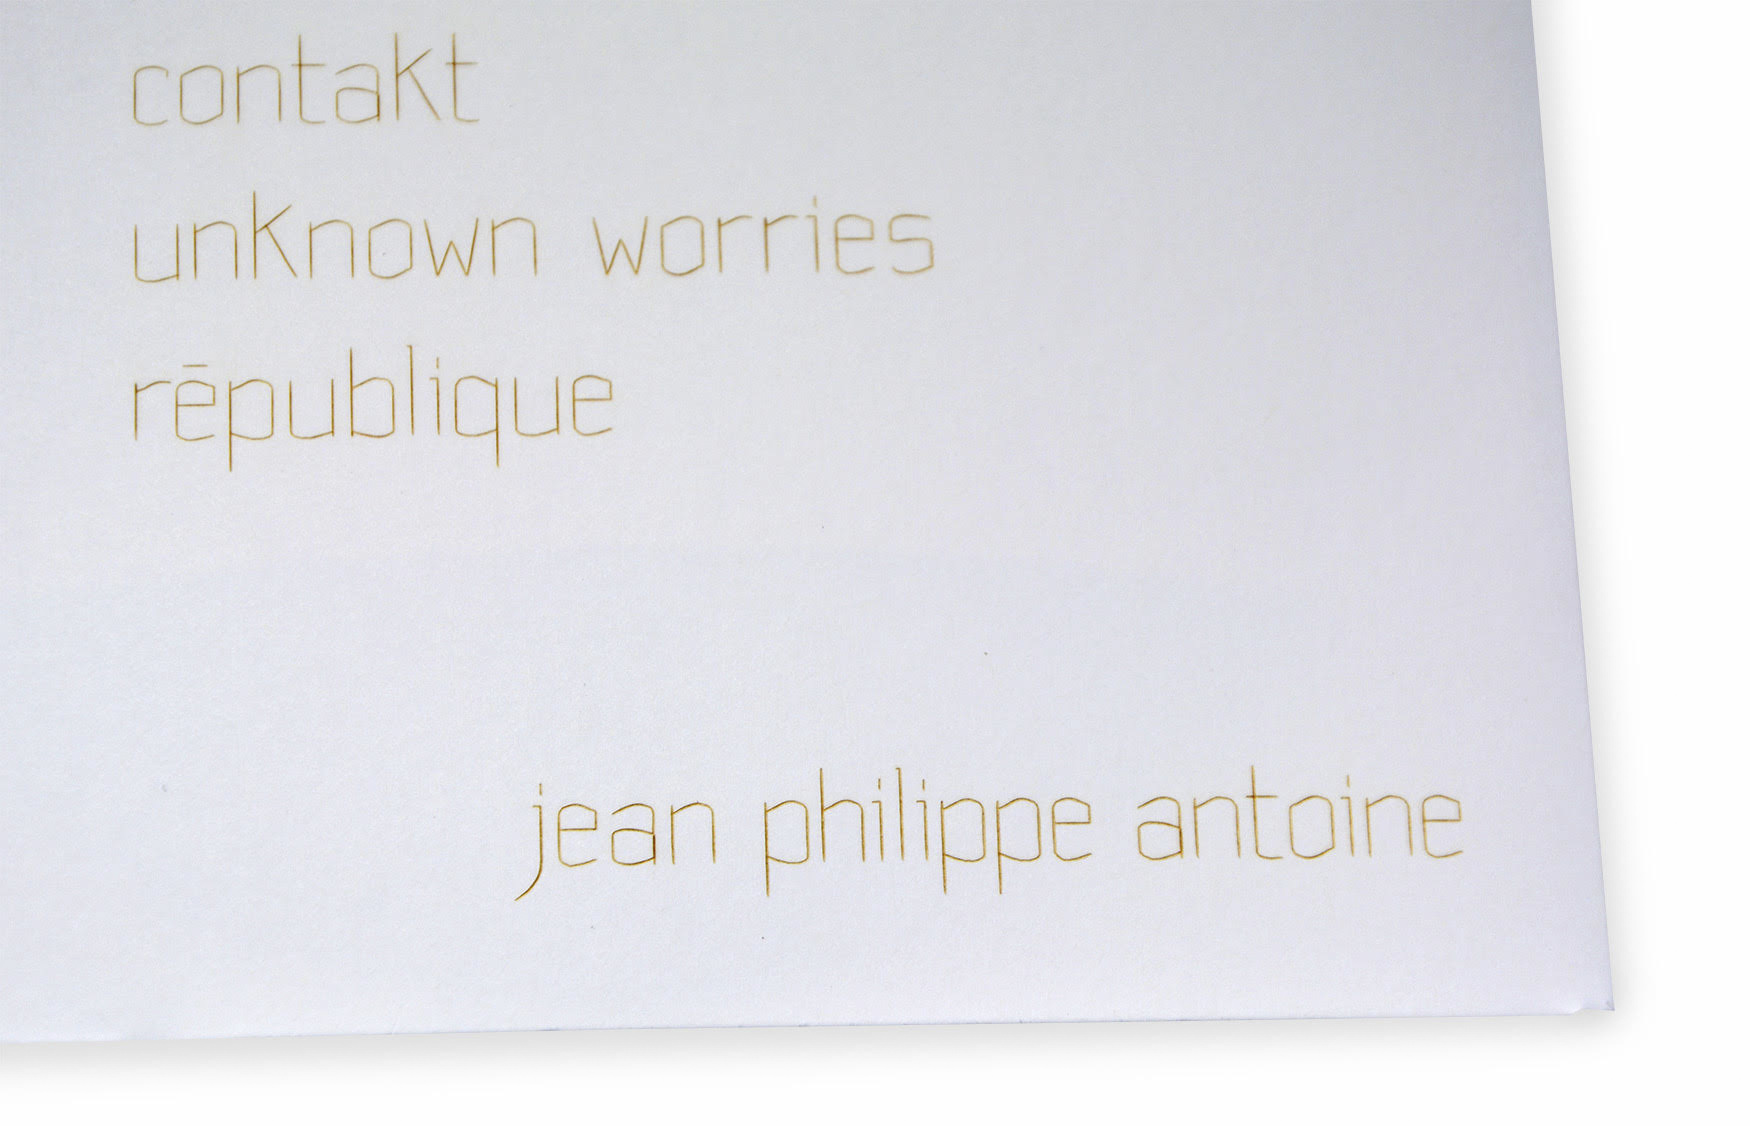 contakt
unknown worries
rēpublique
jean philippe antoine